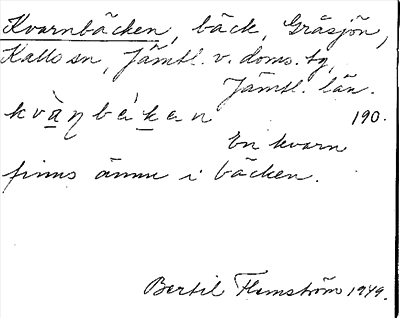 Kvarnbäcken, bäck, Gråsjön,
Kalls sn, Jämtl. v. doms. tg,
Jämtl. län.
kvàṇbèken 190.
En kvarn
finns ännu i bäcken.
Bertil Flemström 1949.